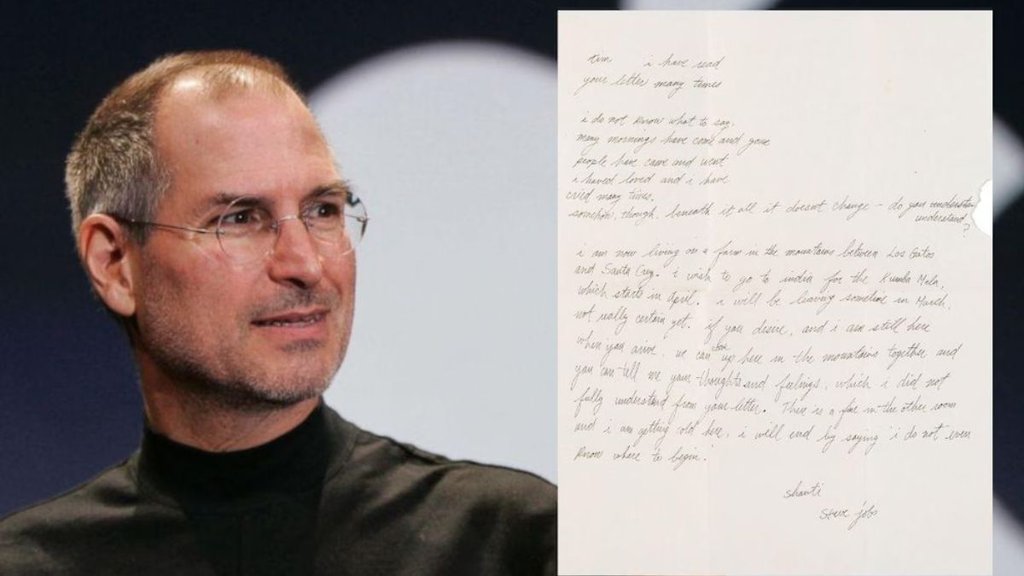 tim i have read
your letter many times
i do not know what to say.
many mornings have come and gone
people have came and went
i haved loved and i have
cried many times.
somehow, though, beneath it all it doesnt change - do you
understand?
i am now living on a farm in the mountains between Los Gatos
and Santa Cruz. i wish to go to india for the Kumba Mela,
which starts in April. i will be leaving sometime in March,
not really certain yet. if you desire, and i am still here
when you arive, we can up here in the mountains together and
you can tell me your thoughts and feelings, which i did not
fully understand from your letter. There is a fire in the other room
and i am getting here, i will end by saying i do not even
know where to begin.
shanti
steve jobs